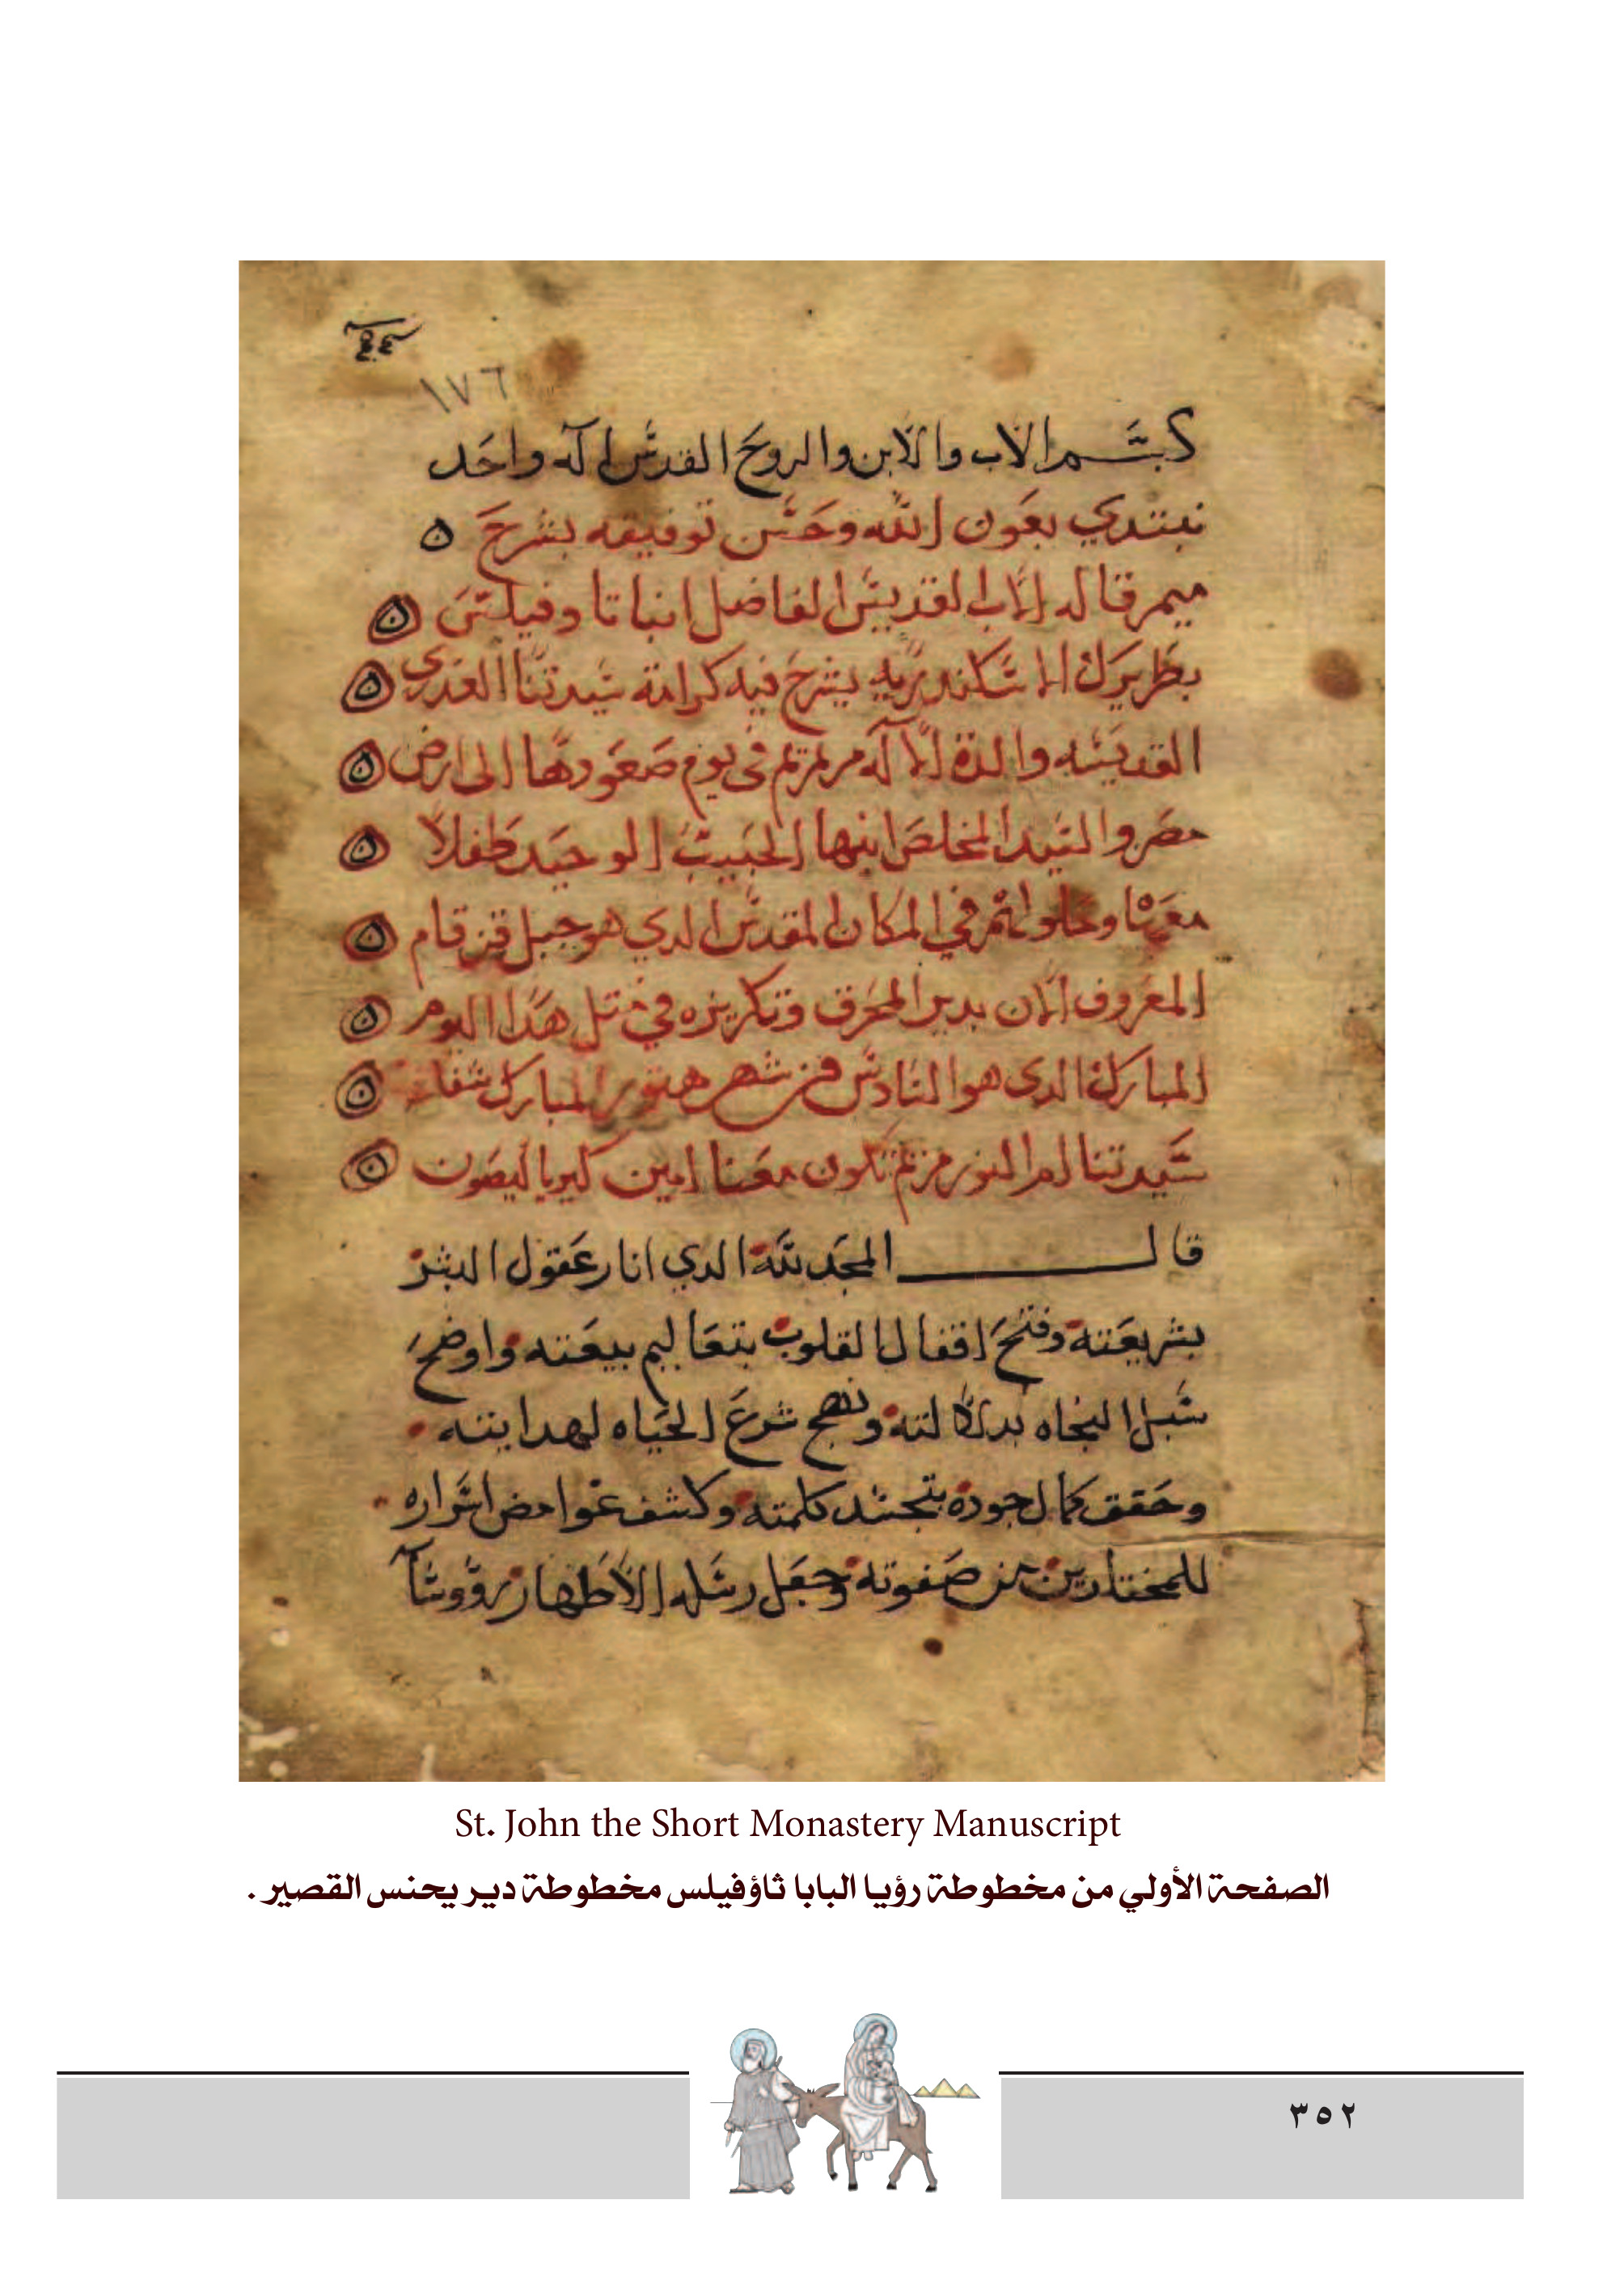 ١٧٦
بسم الاب والابن والروح القدس اله واحد
نبتدي بعون الله وحسن توفيقه بشرح
ميمر قاله الاب القديس الفاضل انبا تاوفيلس
بطريرك الاسكندريه يشرح فيه كرامة سيدتنا العدري
القديسه والدة الاله مرتمريم فى يوم صعودها الى ارض
مصر والسيد المخلص ابنها الحبيب الوحيد طفلا
معها وحلولهم في المكان المقدس الدي هو جبل قزقام
المعروف الان بدير المحرق وتكريزه في متل هدا اليوم
المبارك الدى هو السادس من شهر هتور المبارك شفاعة
سيدتنا ام النور مريم تكون معنا امين كيرياليصون
قال المجد لله الدي انار عقول البشر
بشريعته وفتح اقفال القلوب بتعاليم بيعته واوضح
سبل النجاه بدلالته ونهج شرع الحياه لهدايته
وحقق كمال جوده بتجسد كلمته وكشف غوامض اسراره
للمختارين من صفوته وجعل رسله الاطهار رووسآ
St. John the Short Monastery Manuscript
الصفحة الأولي من مخطوطة رؤيا البابا ثاؤفيلس مخطوطة دير يحنس القصير .
٣٥٢